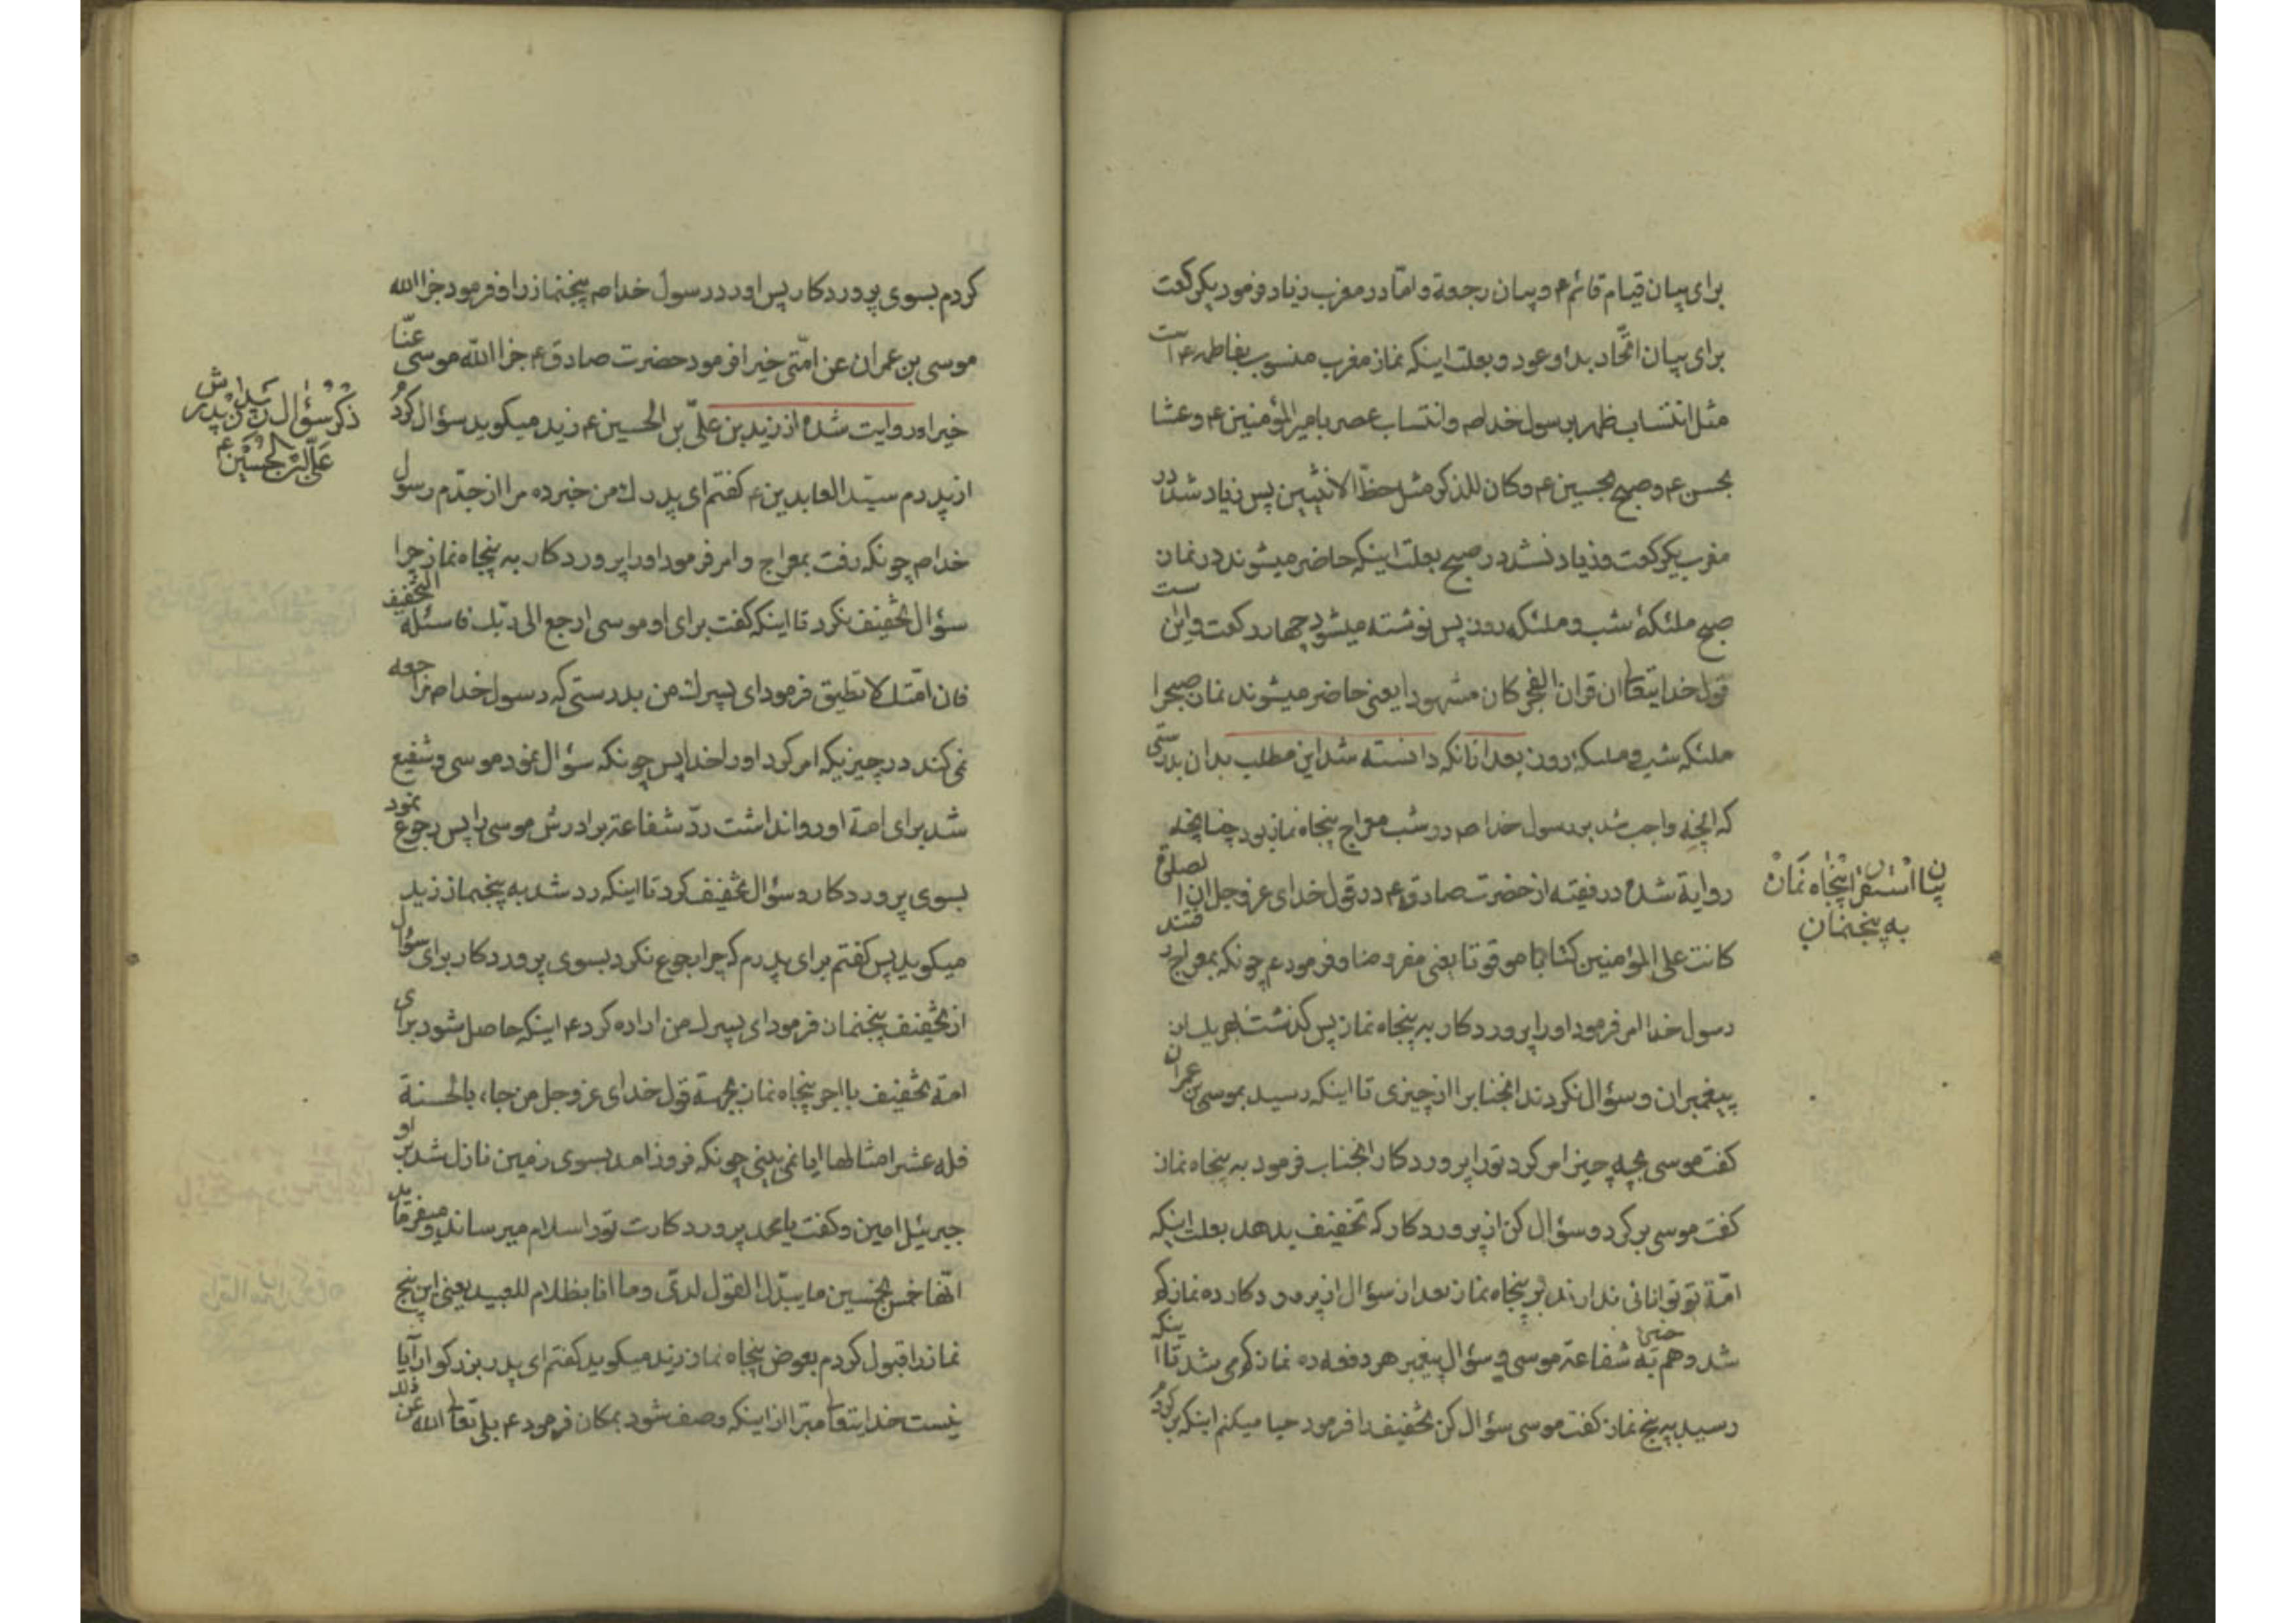 برای بیان قیام قائم ع و بیان رجعة و امّا در مغرب زیاد فرمود یکرکعت
برای بیان اتّحاد بدا و عود و بعلت اینکه نماز مغرب منسوب بفاطمه ع است
مثل انتساب ظهر برسول خدا ص و انتساب عصر بامیرالمؤمنین ع و عشا
بحسن ع و صبح بحسین ع و کان للذکر مثل حظّ الانثیین پس زیاد شد در
مغرب یکرکعت و زیاد نشد در صبح بعلت اینکه حاضر میشوند در نماز
صبح ملئکهٔ شب و ملئکه روز پس نوشته میشود چهار رکعت و این است
قول خدایتعا ان قران الفجر کان مشهودا یعنی حاضر میشوند نماز صبحرا
ملئکه شب و ملئکه روز بعد از انکه دانسته شد این مطلب بدان بدرستی
که انچه واجب شد بر رسول خدا ص در شب معراج پنجاه نماز بود چنانچه
روایة شده در فقیه از حضرت صادق ع در قول خدای عز و جل ان الصلوة
کانت علی المؤمنین کتابا موقوتا یعنی مفروضا و فرمود ع چونکه بمعراج رفتند
رسول خدا امر فرمود اورا پروردکار به پنجاه نماز پس کذشتند بر
پیغمبران و سؤال نکردند انجنابرا از چیزی تا اینکه رسید بموسی بن عمران
کفت موسی بچه چیز امر کرد تورا پروردکار انجناب فرمود به پنجاه نماز
کفت موسی برکرد و سؤال کن از پروردکار که تخفیف بدهد بعلت اینکه
امّة تو توانائی ندارند بر پنجاه نماز بعد از سؤال از پروردکار ده نماز کم
شد و همچنین به شفاعة موسی و سؤال پیغمبر هر دفعه ده نماز کم می شد تا اینکه
رسید به پنج نماز کفت موسی سؤال کن تخفیف را فرمود حیا میکنم اینکه برکردم
بیان استقرار پنجاه نماز
به پنجنماز
کردم بسوی پروردکار پس اورد رسول خدا ص پنجنمازرا و فرمود جزا الله
موسی بن عمران عن امّتی خیرا فرمود حضرت صادق ع جزا الله موسی عنّا
خیرا و روایت شده از زید بن علیّ بن الحسین ع زید میکوید سؤال کردم
از پدرم سیّد العابدین ع کفتم ای پدرک من خبر ده مرا از جدّم رسول
خدا ص چونکه رفت بمعراج و امر فرمود اورا پروردکار به پنجاه نماز چرا
سؤال تخفیف نکرد تا اینکه کفت برای او موسی ارجع الی ربّک فاسئله التخفیف
فان امّتک لا تطیق فرمود ای پسرک من بدرستی که رسول خدا ص مراجعه
نمی کند در چیزیکه امر کرد اورا خدا پس چونکه سؤال نمود موسی و شفیع
شد برای امة او روا نداشت ردّ شفاعة برادرش موسی را پس رجوع نمود
بسوی پروردکار و سؤال تخفیف کرد تا اینکه رد شد به پنجنماز زید
میکوید پس کفتم برای پدرم که چرا رجوع نکرد بسوی پروردکار برای سؤال
از تخفیف پنجنماز فرمود ای پسرک من اراده کرد ع اینکه حاصل شود برای
امة تخفیف با اجر پنجاه نماز بجهة قول خدای عز و جل من جاء بالحسنة
فله عشر امثالها ایا نمی بینی چونکه فرود امد بسوی زمین نازل شد بر او
جبرئیل امین و کفت یا محمد پروردکارت تورا سلام میرساند و میفرماید
انّها خمس بخمسین ما یبدّل القول لدیّ و ما انا بظلام للعبید یعنی این پنج
نمازرا قبول کردم بعوض پنجاه نماز زید میکوید کفتم ای پدر بزرکوار آیا
نیست خدایتعا مبّرا از اینکه وصف شود بمکان فرمود ع بلی تعا الله عن ذلک
ذکر سؤال زید از پدرش
علی بن الحسین ع